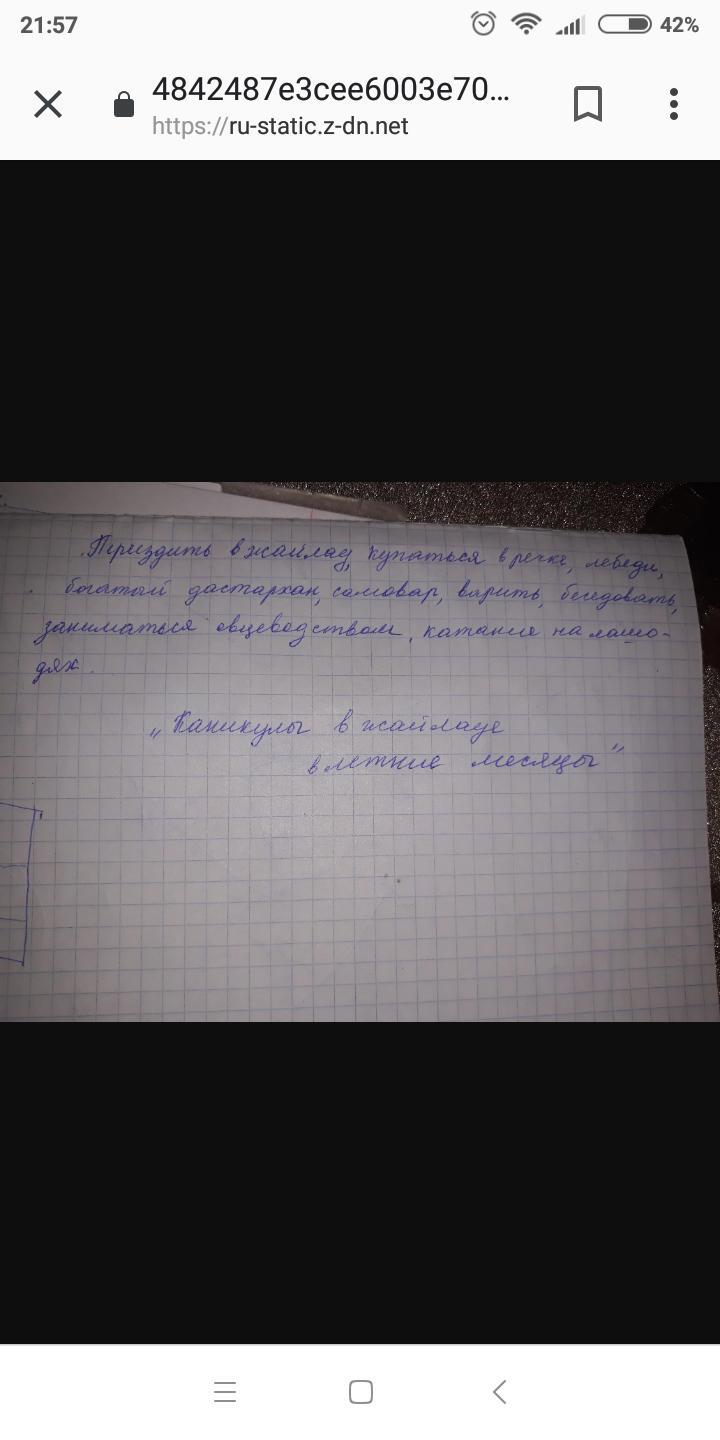 21:57
42%
4842487e3cee6003e70...
https://ru-static.z-dn.net
Приездить в жайлау, купаться в речке, лебеди,
богатый дастархан, самовар, варить, беседовать,
заниматься овцеводством, катание на лошо-
дях.
„Каникулы в жайлауе
в летние месяцы"